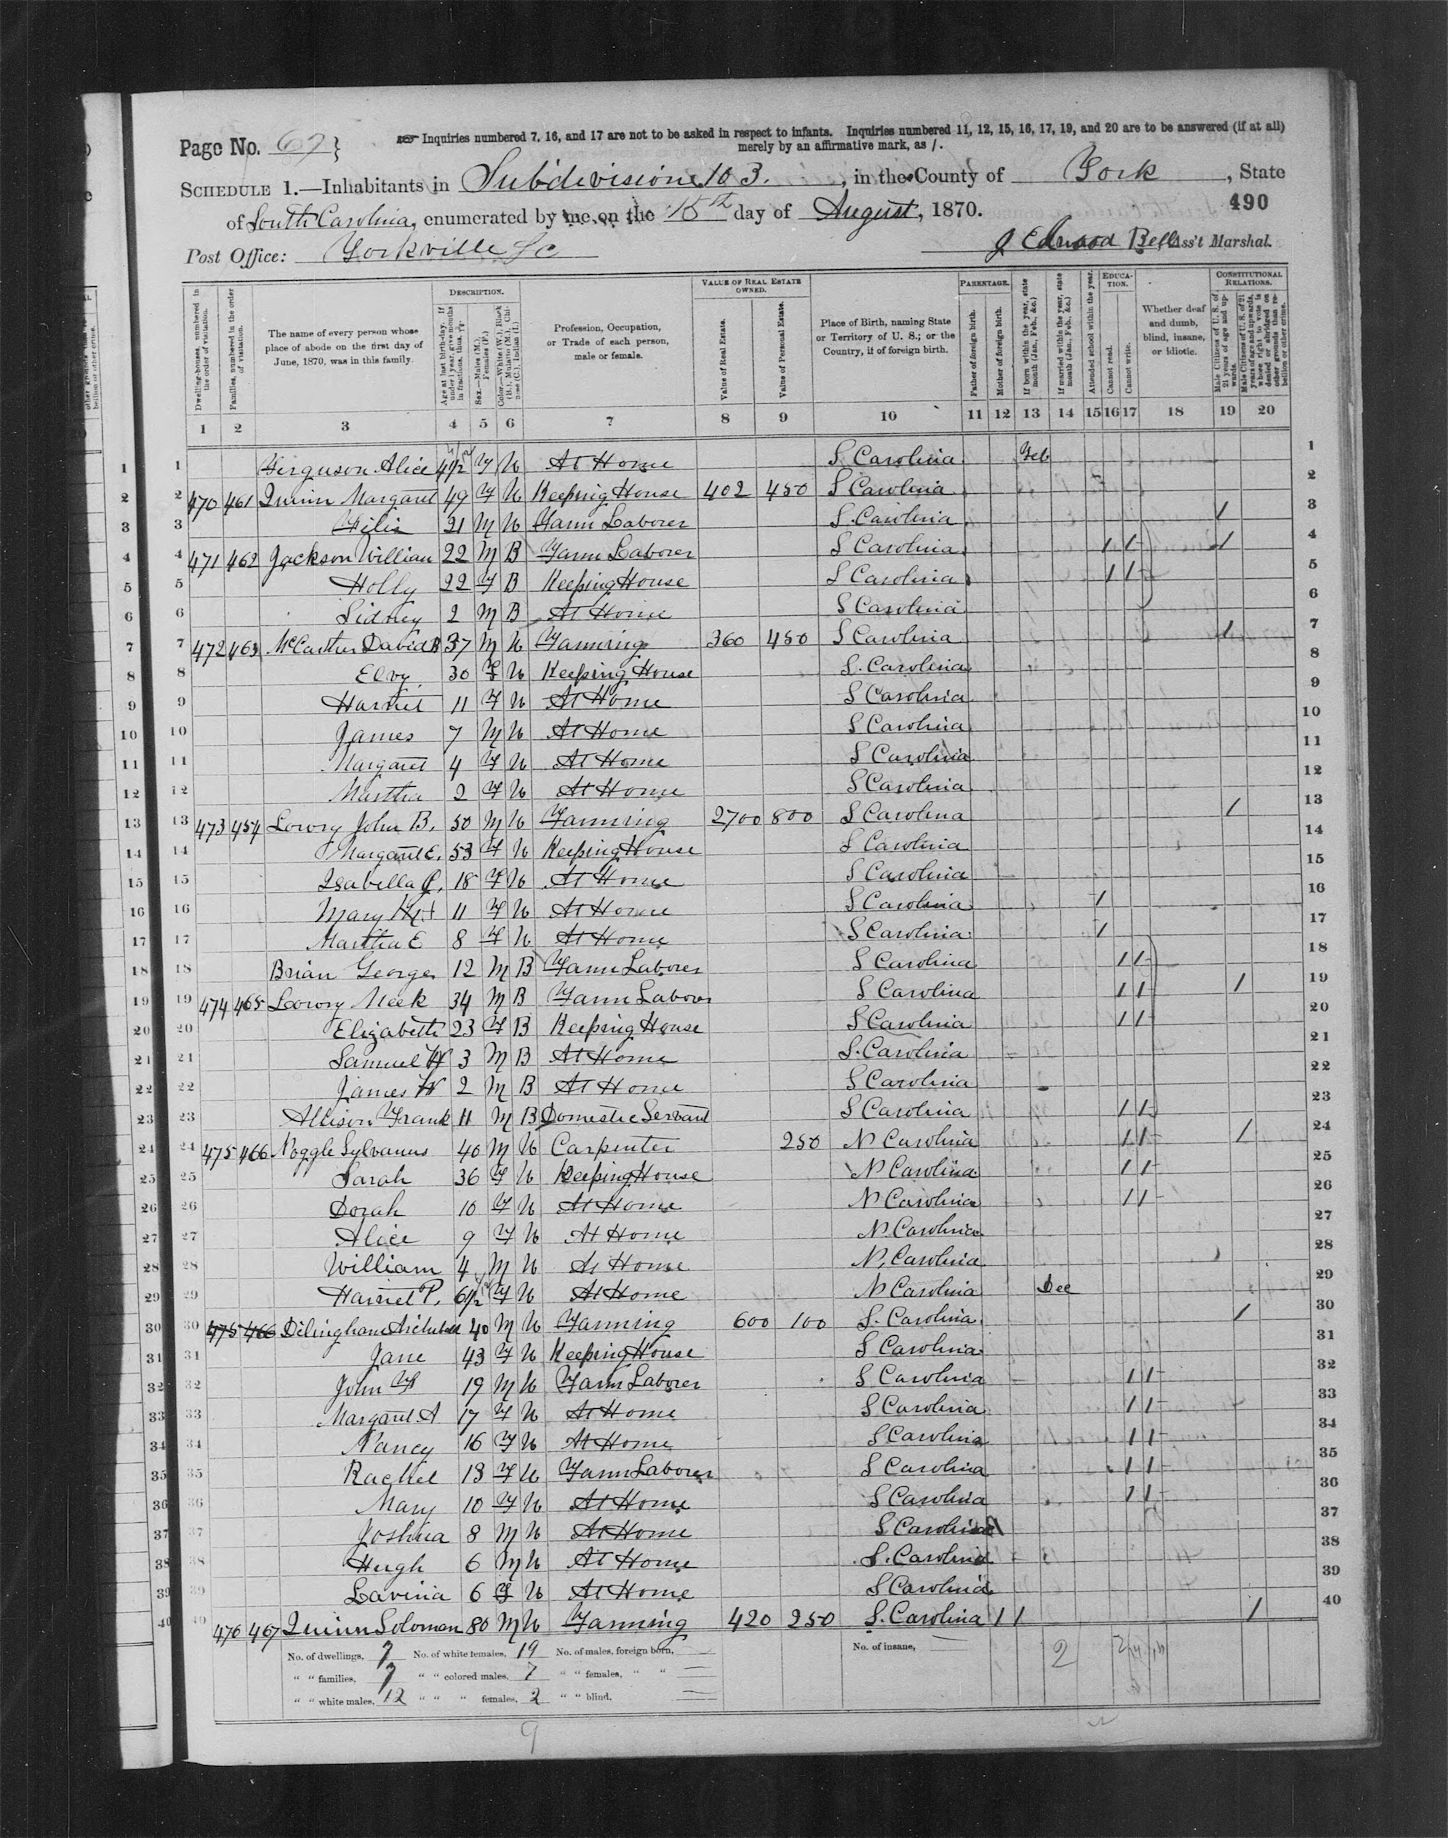 Page No. 67 }
Inquiries numbered 7, 16, and 17 are not to be asked in respect to infants. Inquiries numbered 11, 12, 15, 16, 17, 19, and 20 are to be answered (if at all)
merely by an affirmative mark, as /.
SCHEDULE 1.—Inhabitants in Subdivision 103., in the County of York, State
of South Carolina, enumerated by me on the 15th day of August, 1870.
490
Post Office: Yorkville SC
J Edward Bell Ass't Marshal.
DESCRIPTION. VALUE OF REAL ESTATE OWNED. PARENTAGE. EDUCATION. CONSTITUTIONAL RELATIONS.
Dwelling-houses, numbered in the order of visitation.
Families, numbered in the order of visitation.
The name of every person whose place of abode on the first day of June, 1870, was in this family.
Age at last birth-day. If under 1 year, give months in fractions, thus, 3/12
Sex.—Males (M.), Females (F.)
Color.—White (W.), Black (B.), Mulatto (M.), Chinese (C.), Indian (I.)
Profession, Occupation, or Trade of each person, male or female.
Value of Real Estate.
Value of Personal Estate.
Place of Birth, naming State or Territory of U. S.; or the Country, if of foreign birth.
Father of foreign birth.
Mother of foreign birth.
If born within the year, state month (Jan., Feb., &c.)
If married within the year, state month (Jan., Feb., &c.)
Attended school within the year.
Cannot read.
Cannot write.
Whether deaf and dumb, blind, insane, or idiotic.
Male Citizens of U. S. of 21 years of age and upwards.
Male Citizens of U. S. of 21 years of age and upwards, whose right to vote is denied or abridged on other grounds than rebellion or other crime.
1 2 3 4 5 6 7 8 9 10 11 12 13 14 15 16 17 18 19 20
1 Ferguson Alice 4/12 F W At Home S Carolina Feb 1
2 470 461 Quinn Margaret 49 F W Keeping House 402 450 S Carolina 2
3 21 M W Farm Laborer S. Carolina / 3
4 471 462 Jackson William 22 M B Farm Laborer S Carolina / / / 4
5 Holly 22 F B Keeping House S Carolina / / 5
6 Sidney 2 M B At Home S Carolina 6
7 472 463 McCarter David R 37 M W Farming 360 450 S Carolina / 7
8 Elvy 30 F W Keeping House S. Carolina 8
9 Harriet 11 F W At Home S Carolina 9
10 James 7 M W At Home S Carolina 10
11 Margaret 4 F W At Home S Carolina 11
12 Martha 2 F W At Home S Carolina 12
13 473 454 Lowry John B. 50 M W Farming 2700 800 S Carolina / 13
14 Margaret E. 53 F W Keeping House S Carolina 14
15 Isabella C. 18 F W At Home S Carolina 15
16 Mary 11 F W At Home S Carolina / 16
17 Martha E 8 F W At Home S Carolina / 17
18 Brian George 12 M B Farm Laborer S Carolina / / 18
19 474 465 Lowry Meek 34 M B Farm Laborer S Carolina / / / 19
20 Elizabeth 23 F B Keeping House S Carolina / / 20
21 Samuel W 3 M B At Home S. Carolina 21
22 James W 2 M B At Home S Carolina 22
23 Allison Frank 11 M B Domestic Servant S Carolina / / 23
24 475 466 Noggle Sylvanus 40 M W Carpenter 250 N Carolina / / / 24
25 Sarah 36 F W Keeping House N Carolina / / 25
26 Dorah 10 F W At Home N Carolina / / 26
27 Alice 9 F W At Home N Carolina 27
28 William 4 M W At Home N. Carolina 28
29 Harriet P. 6/12 F W At Home N Carolina Dec 29
30 475 466 Dilingham 40 M W Farming 600 100 S. Carolina / 30
31 Jane 43 F W Keeping House S Carolina 31
32 John 19 M W Farm Laborer S Carolina / / 32
33 Margaret A 17 F W At Home S Carolina / / 33
34 Nancy 16 F W At Home S Carolina / / 34
35 Rachel 13 F W Farm Laborer S Carolina / / 35
36 Mary 10 F W At Home S Carolina / / 36
37 Joshua 8 M W At Home S Carolina 37
38 Hugh 6 M W At Home S. Carolina 38
39 Lavinia 6 F W At Home S Carolina 39
40 476 467 Quinn Solomon 80 M W Farming 420 250 S. Carolina / / / 40
No. of dwellings, 7 No. of white females, 19 No. of males, foreign born, No. of insane,
" " families, 7 " " colored males, 7 " " females, " " 2
" " white males, 12 " " " females, 2 " " blind,
9